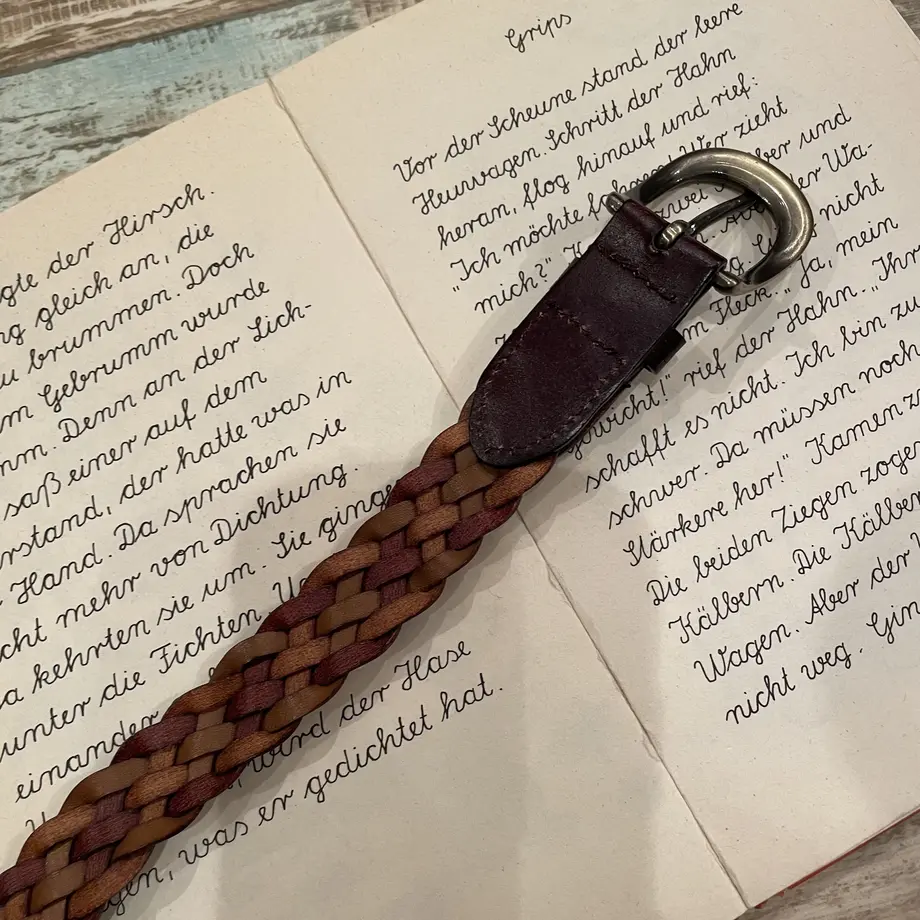 gte der Hirsch.
ng gleich an, die
u brummen. Doch
m Gebrumm wurde
mm. Denn an der Lich-
saß einer auf dem
rstand, der hatte was in
Hand. Da sprachen sie
cht mehr von Dichtung.
a kehrten sie um. Sie ginge
unter die Fichten. U
einander
wird der Hase
gen, was er gedichtet hat.
Grips
Vor der Scheune stand der leere
Heuwagen. Schritt der Hahn
heran, flog hinauf und rief:
"Ich möchte fahren! Wer zieht
mich?" K zwei ber und
Aber der Wa-
g. G nicht
m Fleck. „Ja, mein
gewicht!" rief der Hahn. „Ihr
schafft es nicht. Ich bin zu
schwer. Da müssen noch
Stärkere her!" Kamen z
Die beiden Ziegen zoge
Kälbern. Die Kälber
Wagen. Aber der W
nicht weg. Gin